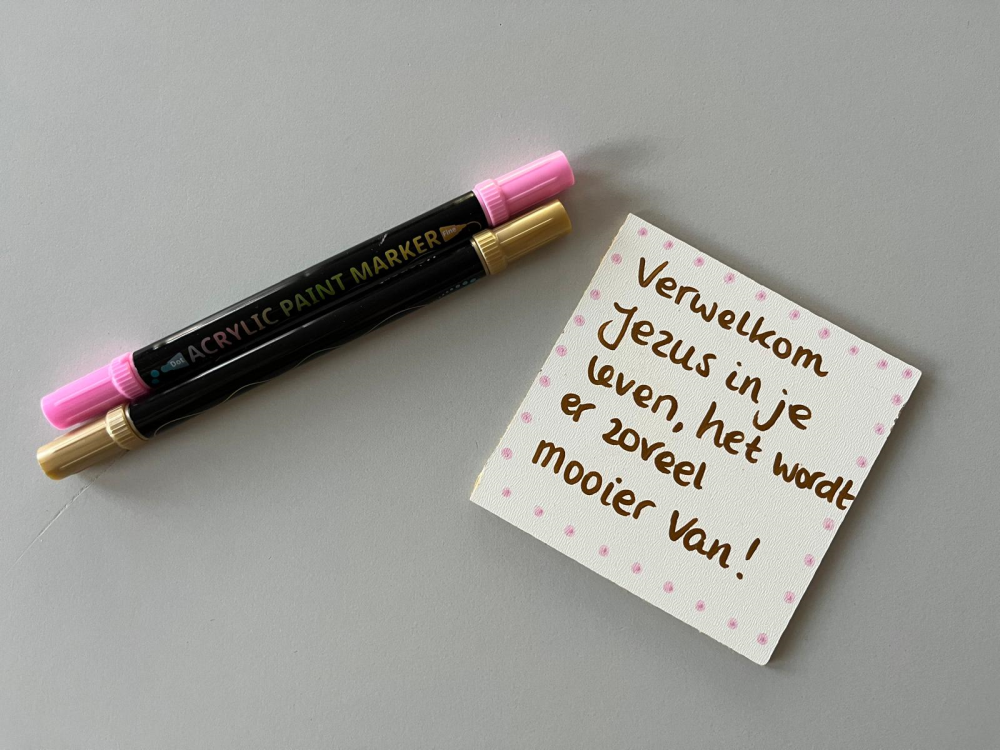 ACRYLIC PAINT MARKER
Dot
Fine
Verwelkom
Jezus in je
leven, het wordt
er zoveel
mooier van!